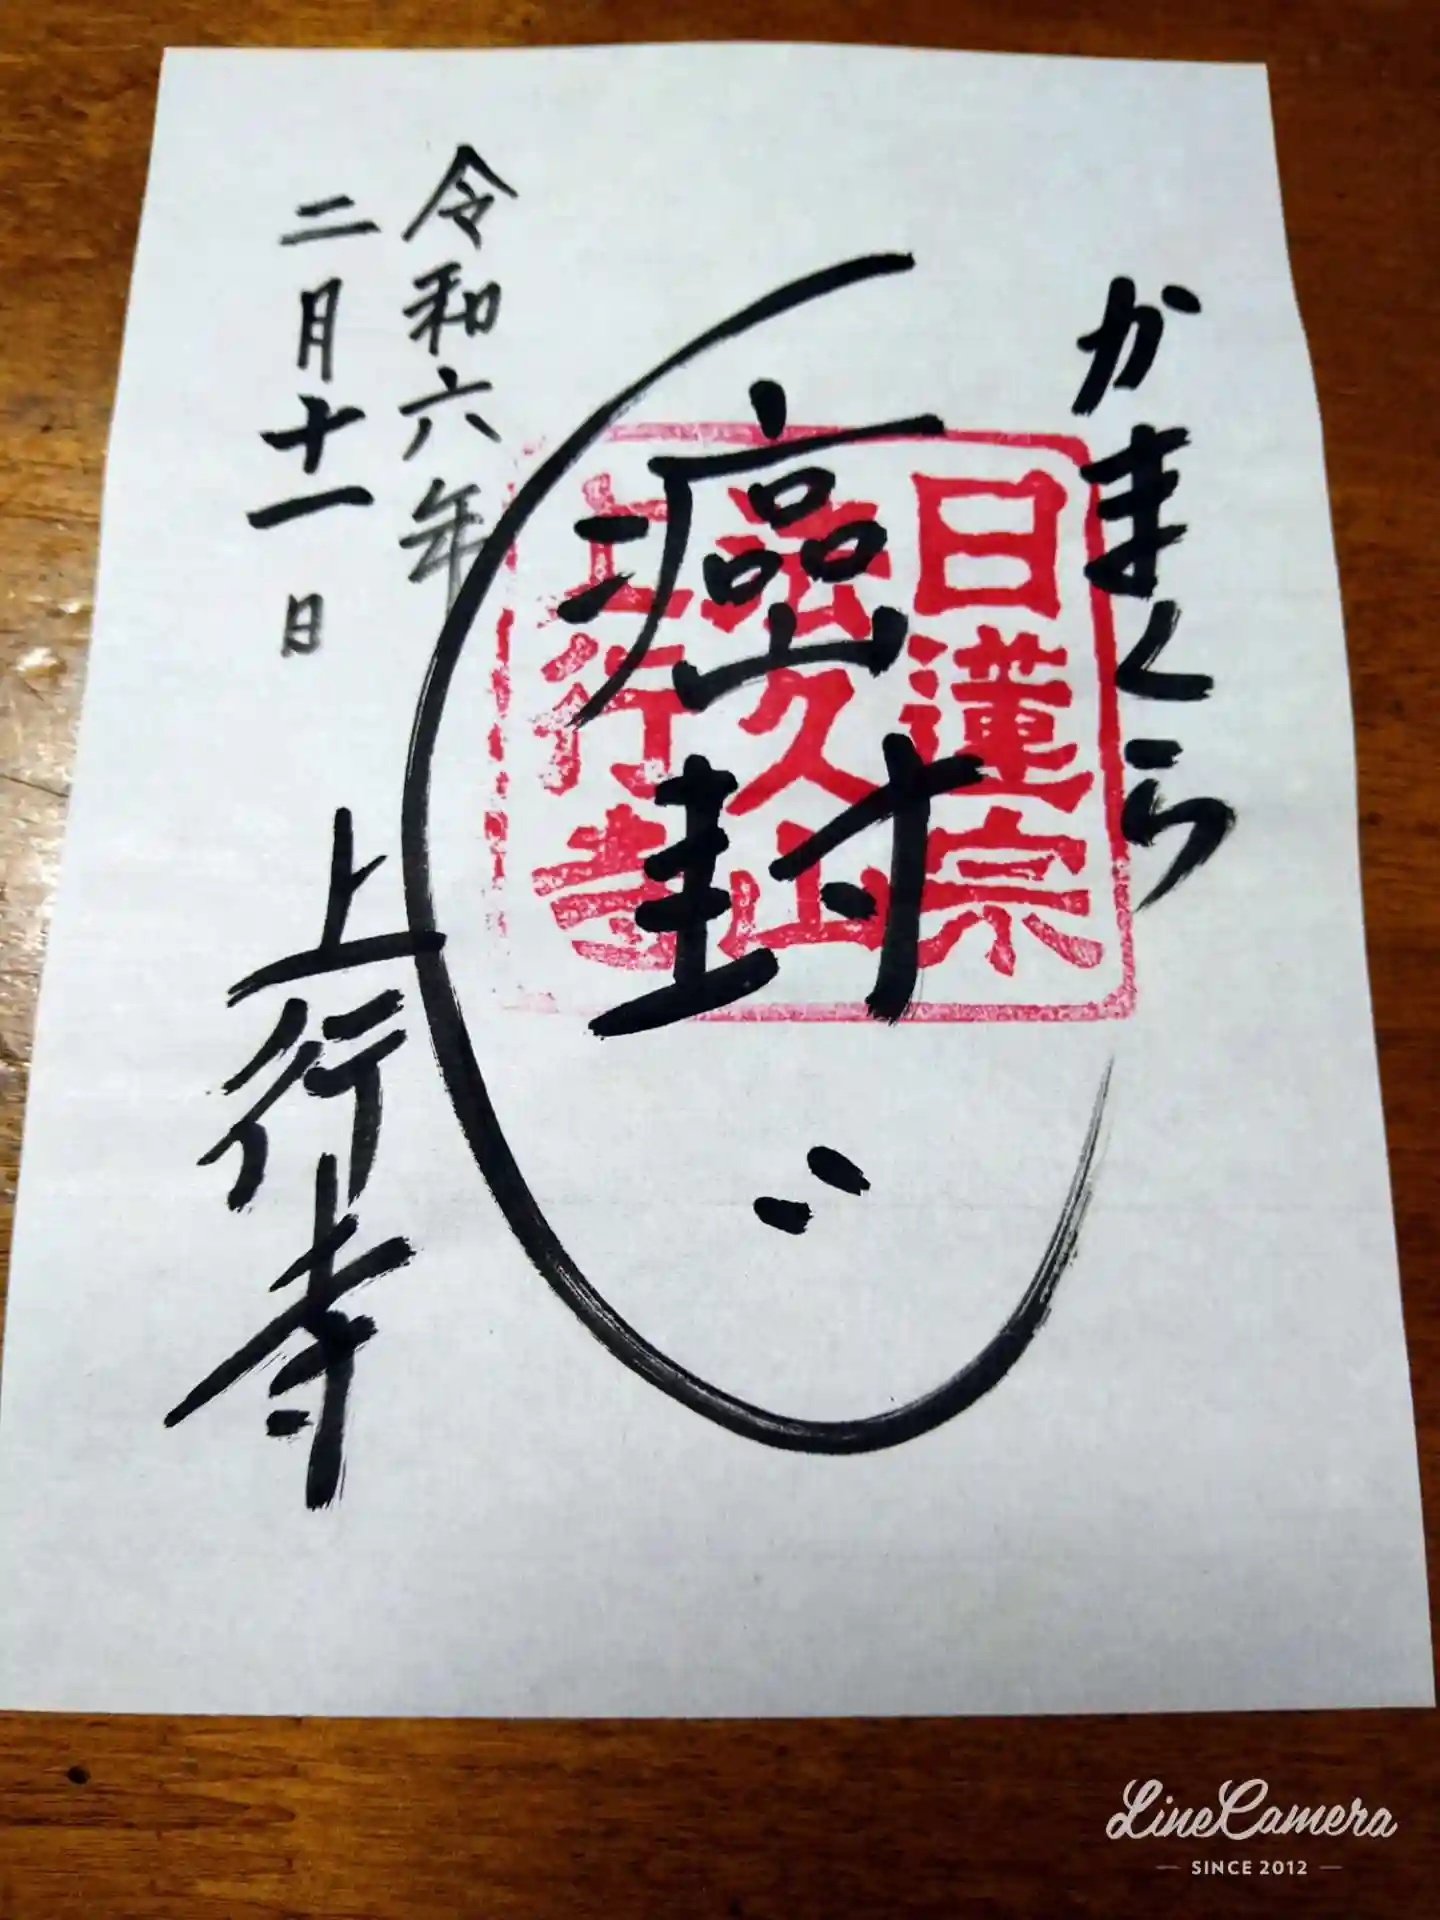 かまくら
癌封じ
日蓮宗
法久山
上行寺
令和六年
二月十一日
上行寺
LineCamera
SINCE 2012